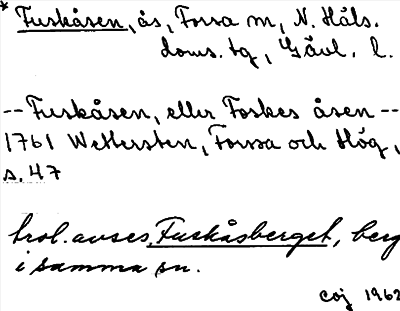 * Fuskåsen, ås, Forsa sn, N. Häls.
doms. tg, Gävl. l.
-- Fuskåsen, eller Foskes åsen --
1761 Wettersten, Forssa och Hög,
s. 47
trol. avses Fuskåsberget, berg
i samma sn.
COJ 1962